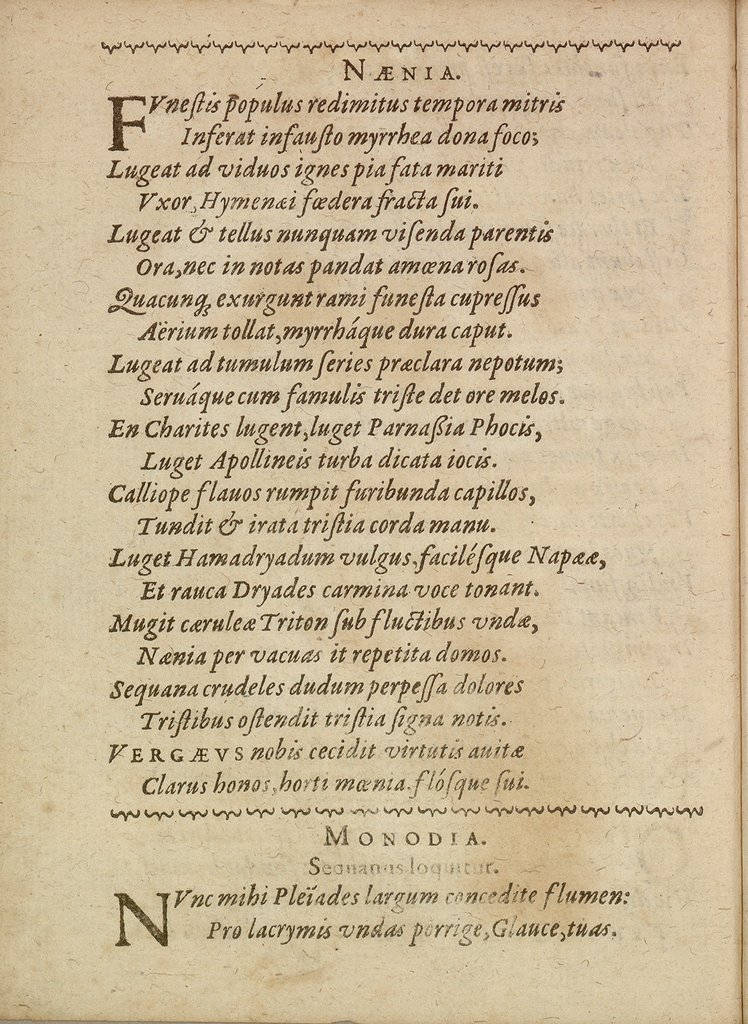 NÆNIA.
FVnestis populus redimitus tempora mitris
Inferat infausto myrrhea dona foco;
Lugeat ad viduos ignes pia fata mariti
Vxor, Hymenæi fœdera fracta sui.
Lugeat & tellus nunquam visenda parentis
Ora, nec in notas pandat amœna rosas.
Quacunq; exurgunt rami funesta cupressus
Aërium tollat, myrrháque dura caput.
Lugeat ad tumulum series præclara nepotum;
Seruáque cum famulis triste det ore melos.
En Charites lugent, luget Parnaßia Phocis,
Luget Apollineis turba dicata iocis.
Calliope flauos rumpit furibunda capillos,
Tundit & irata tristia corda manu.
Luget Hamadryadum vulgus, facilésque Napææ,
Et rauca Dryades carmina voce tonant.
Mugit cæruleæ Triton sub fluctibus vndæ,
Nænia per vacuas it repetita domos.
Sequana crudeles dudum perpessa dolores
Tristibus ostendit tristia signa notis.
VERGÆVS nobis cecidit virtutis auitæ
Clarus honos, horti mœnia, flósque sui.
MONODIA.
loquitur.
NVnc mihi Pleïades largum concedite flumen:
Pro lacrymis vndas porrige, Glauce, tuas.